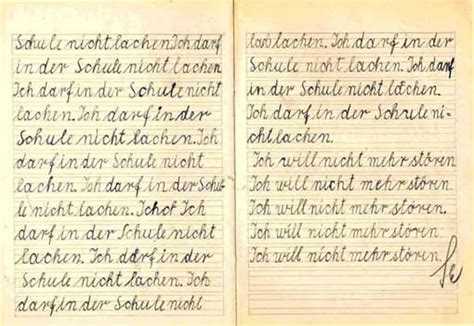 Schule nicht lachen. Ich darf
in der Schule nicht lachen
Ich darf in der Schule nicht
lachen. Ich darf in der
Schule nicht lachen. Ich
darf in der Schule nicht
lachen. Ich darf in der Schul-
le nicht lachen. Ich
darf in der Schule nicht
lachen. Ich darf in der
Schule nicht lachen. Ich
darf in der Schule nicht
lachen. Ich darf in der
Schule nicht lachen. Ich darf
in der Schule nicht lachen
Ich darf in der Schule ni-
cht lachen.
Ich will nicht mehr stören
Ich will nicht mehr stören
Ich will nicht mehr stören.
Ich will nicht mehr stören
Ich will nicht mehr stören.